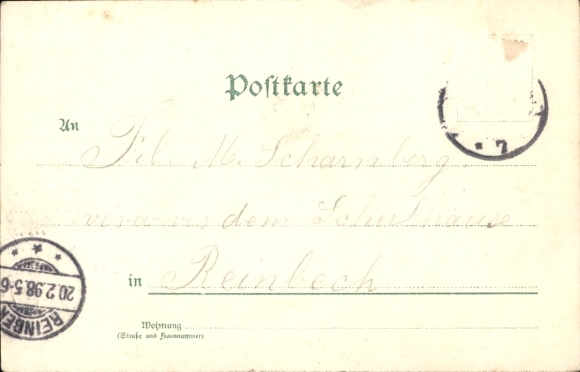 Postkarte
An
Frl. M. Scharnberg
vis-a-vis dem Schulhause
in Reinbeck
Wohnung
(Straße und Hausnummer)
REINBEK
20.2.98.5-6
7